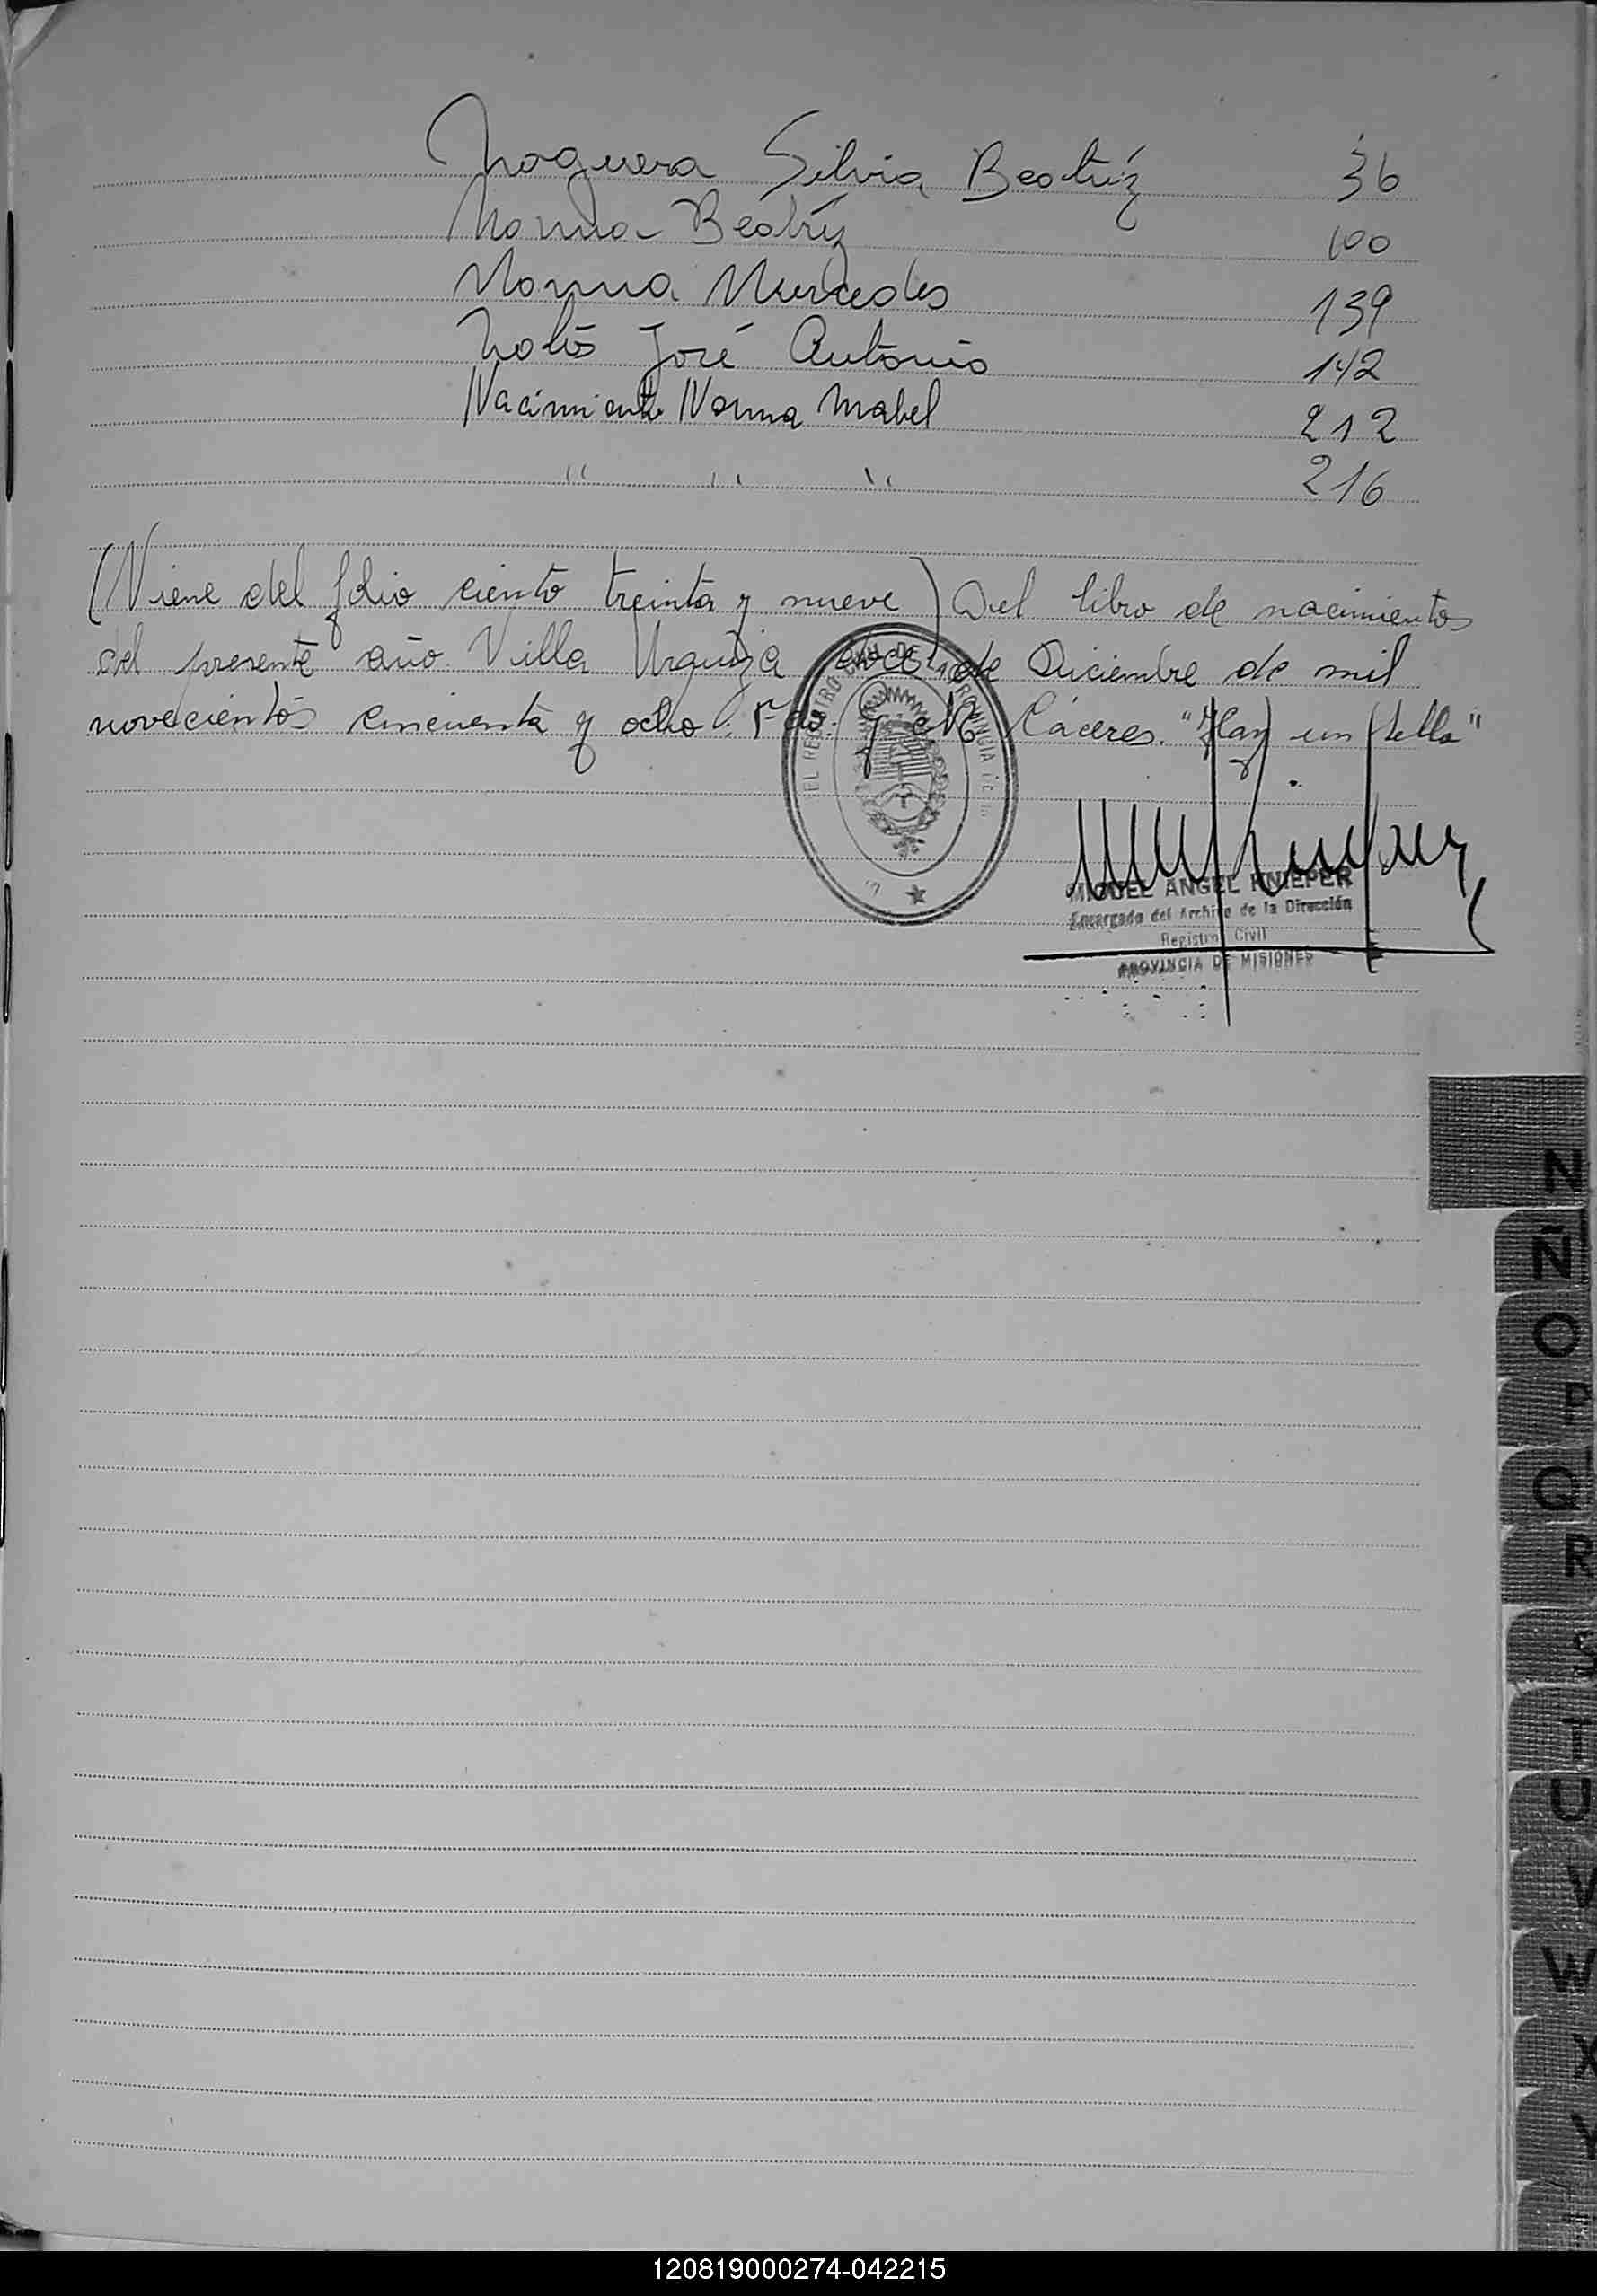 Noguera Silvia Beatríz 36
Norma Beatríz 100
Norma Mercedes 139
José Antonio 142
Nacimiento Norma Mabel 212
" " " 216
(Viene del folio ciento treinta y nueve) Del libro de nacimientos
del presente año. Villa Urquiza doce de Diciembre de mil
novecientos cincuenta y ocho. Fdo. Cáceres. "Hay un sello"
MIGUEL ANGEL KNIEPER
Encargado del Archivo de la Dirección
Registro Civil
PROVINCIA DE MISIONES
N
Ñ
O
P
Q
R
S
T
U
V
W
X
Y
120819000274-042215